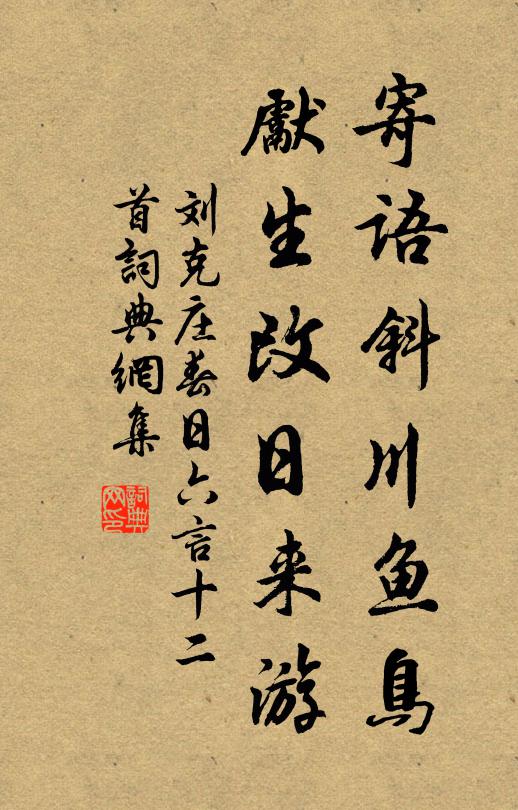 寄语斜川鱼鳥
獻生改日来游
刘克庄春日六言十二
首詞典網集
詞典
网印